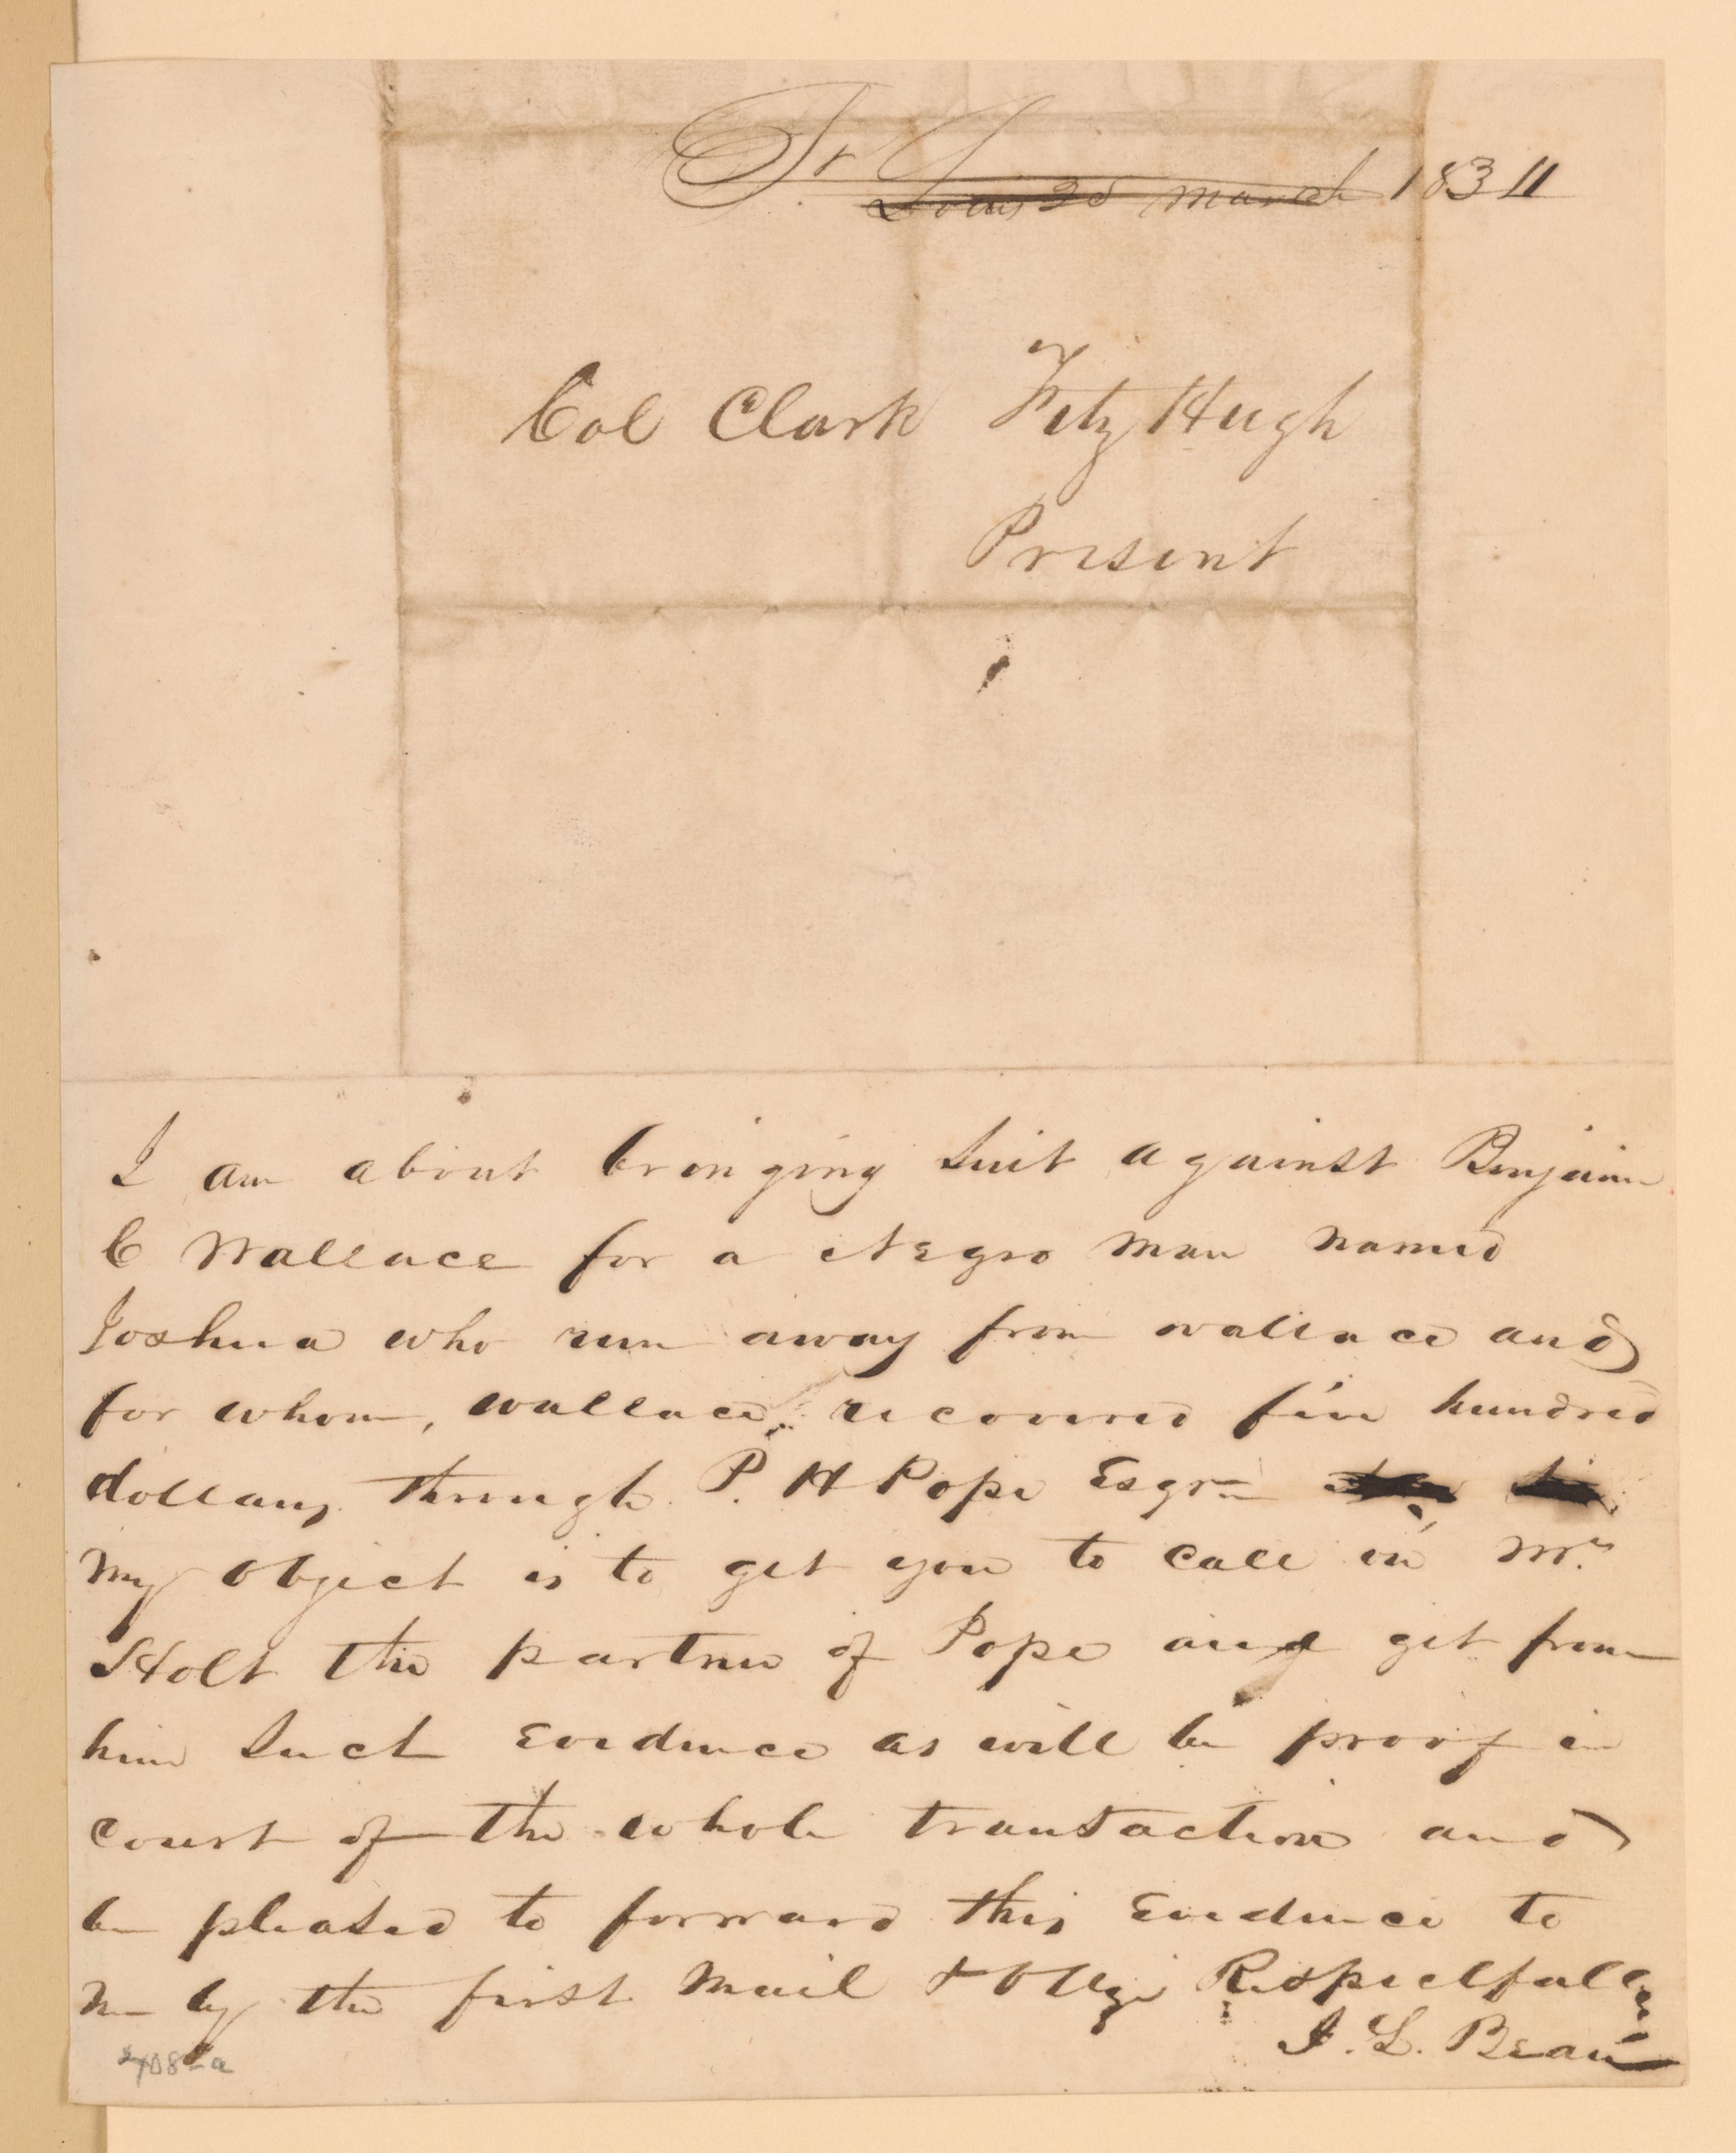 St
Louis 25 March 1834
Col Clark FitzHugh
Present
I am about bringing Suit against Benjaim
C Wallace for a Negro man named
Joshua who run away from wallace and
for whom, wallace recovered five hundred
dollars through P. H Pope Esqr
My object is to get you to call on Mr
Holt the partner of Pope and get from
him Such Evidence as will be proof in
court of the whole transaction and
be pleased to forward this Evidence to
me by the first Mail & oblige Respectfully
L. Bean